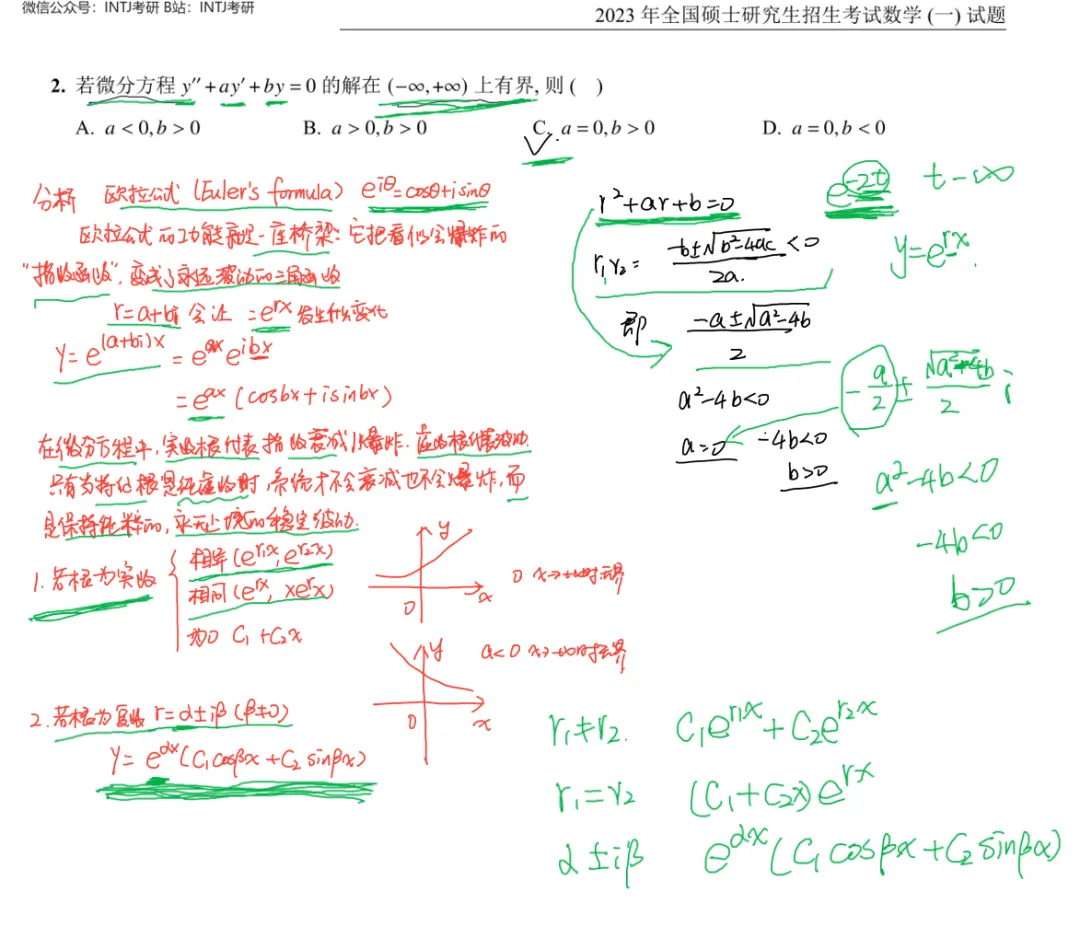 微信公众号：INTJ考研 B站：INTJ考研
2023 年全国硕士研究生招生考试数学 (一) 试题
2. 若微分方程 y″+ay′+by=0 的解在 (−∞,+∞) 上有界, 则 ( )
A. a<0,b>0 B. a>0,b>0 C. a=0,b>0 D. a=0,b<0
分析 欧拉公式 (Euler's formula) e^{iθ}=cosθ+isinθ
欧拉公式的功能就是一座桥梁：它把看似会爆炸的
"指数函数"，变成了永远波动的三角函数
r=a+bi 会让 =e^{rx} 发生什么变化
Y=e^{(a+bi)x}=e^{ax}e^{ibx}
=e^{ax}(cosbx+isinbx)
在微分方程中，实数根代表指数衰减/爆炸．虚数根代表波动．
只有当特征根是纯虚数时，系统才不会衰减也不会爆炸，而
是保持纯粹的，永无止境的稳定波动．
1. 若根为实数
相异(e^{r1x}, e^{r2x})
相同(e^{rx}, xe^{rx})
为0 C₁+C₂x
y
0
x
0 x→+∞时无界
y
0
x
a<0 x→-∞时无界
2. 若根为复数 r=α±iβ (β≠0)
Y=e^{αx}(C₁cosβx+C₂sinβx)
r²+ar+b=0
r₁,r₂= (-b±√(b²-4ac))/(2a) <0
即 (-a±√(a²-4b))/2
a²-4b<0
a=0 -4b<0
b>0
e^{-2t} t-∞
y=e^{rx}
a²-4b<0
-4b<0
b>0
r₁≠r₂. C₁e^{r1x}+C₂e^{r2x}
r₁=r₂ (C₁+C₂x)e^{rx}
α±iβ e^{αx}(C₁cosβx+C₂sinβx)